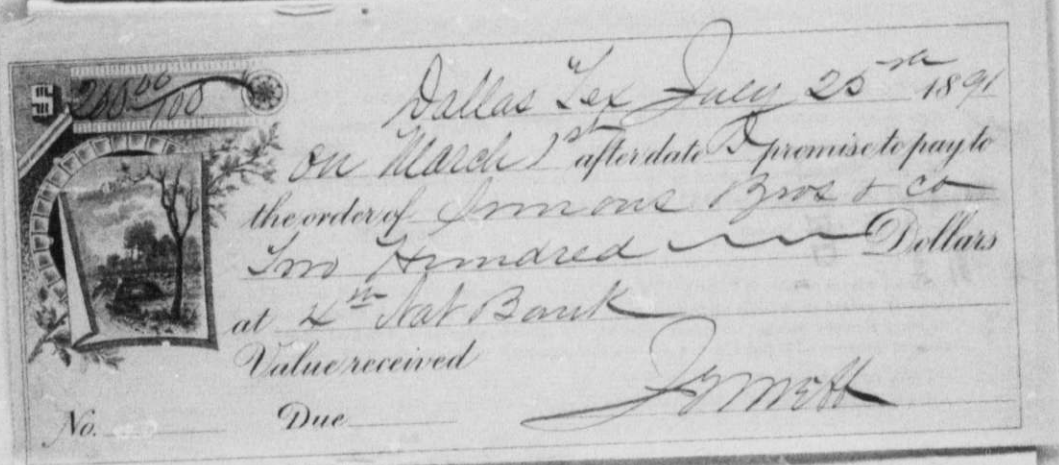 200 00/100
Dallas Tex July 25th 1891
on March 1st after date I promise to pay to
the order of Simons Bros & Co
Two Hundred Dollars
at 4th Nat Bank
Value received
No. Due